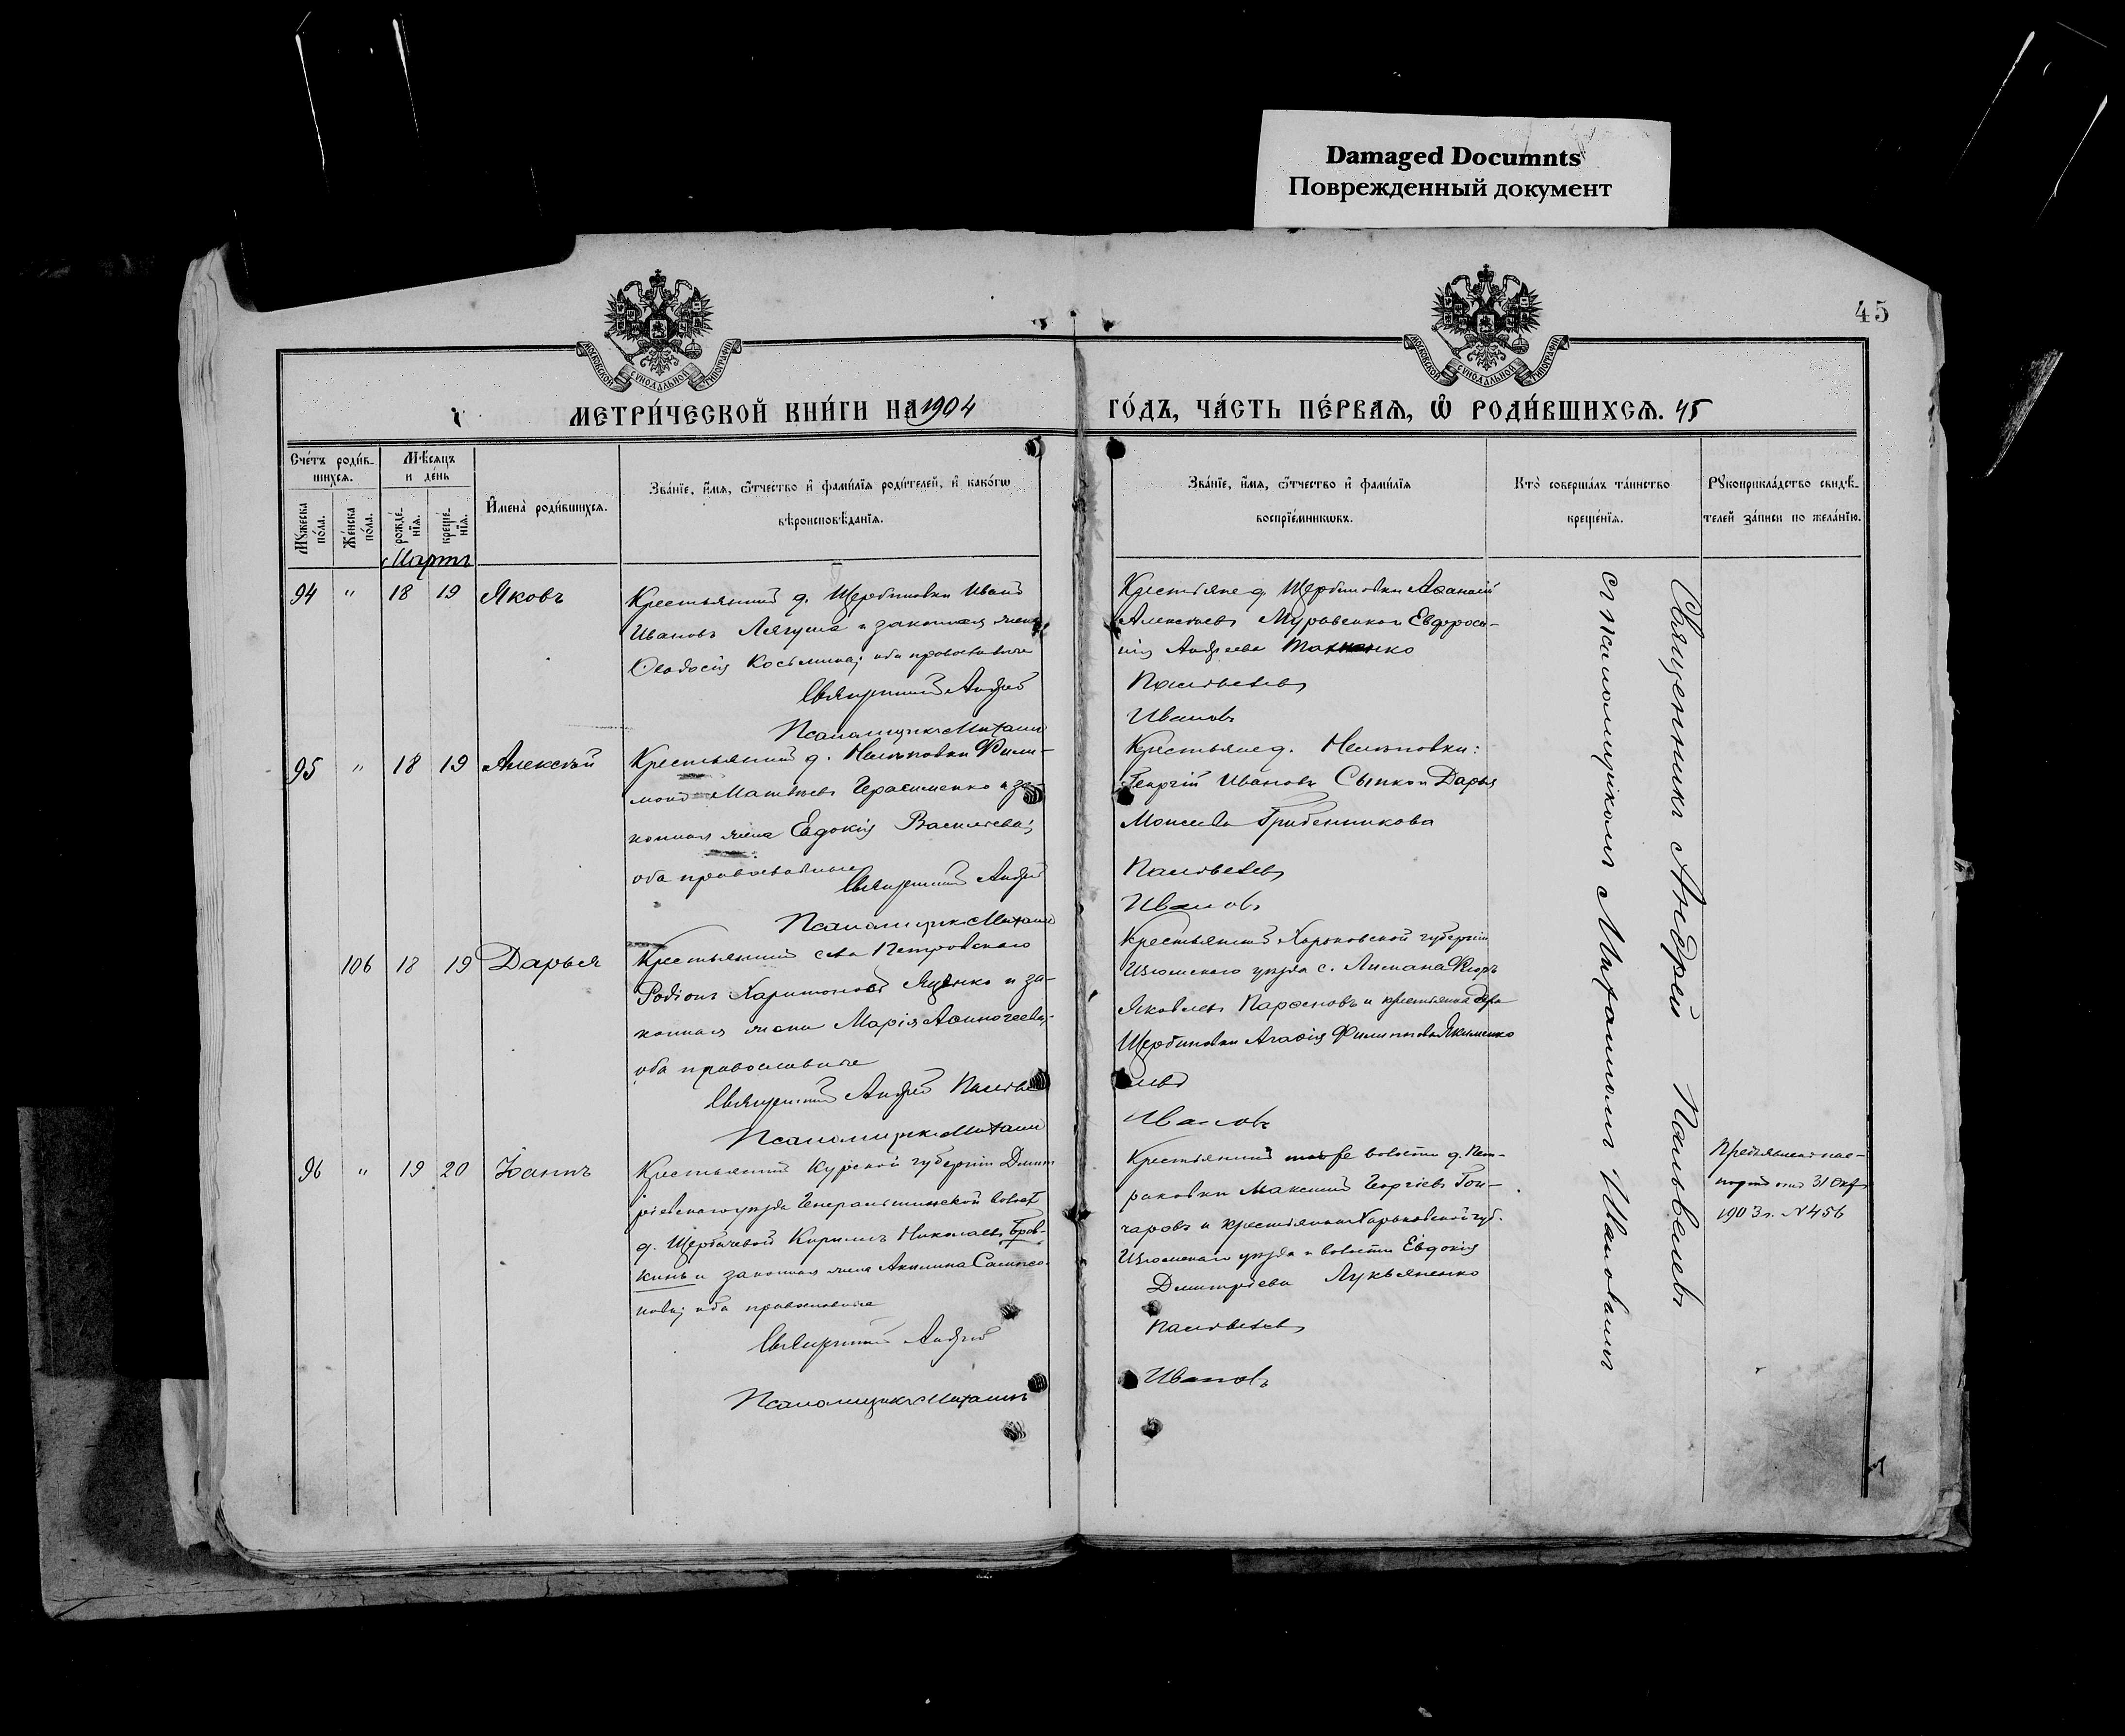 Damaged Documnts
Поврежденный документ
45
МОСКОВСКОЙ СѴНОДАЛЬНОЙ ТИПОГРАФІИ
МОСКОВСКОЙ СѴНОДАЛЬНОЙ ТИПОГРАФІИ
МЕТРИ́ЧЕСКОЙ КНИ́ГИ НА 1904
ГО́ДЪ, ЧА́СТЬ ПЕ́РВАѦ, Ѽ РОДИ́ВШИХСѦ. 45
Сче́тъ роди́в-
шихсѧ.
Мꙋ́жеска по́ла.
Же́нска по́ла.
Мѣ́сѧцъ
и де́нь
рожде́-
нїѧ.
креще́-
нїѧ.
Мартъ
И҆мена̀ роди́вшихсѧ.
Зва́нїе, и҆́мѧ, ѻ҆́тчество и҆ фами́лїѧ роди́телей, и҆ како́гѡ
вѣроисповѣ́данїѧ.
Зва́нїе, и҆́мѧ, ѻ҆́тчество и҆ фами́лїѧ
воспрїе́мникѡвъ.
Кто̀ соверша́лъ та́инство
креще́нїѧ.
Рꙋкоприкла́дство свидѣ́-
телей за́писи по жела́нїю.
94 " 18 19 Яковъ
Крестьянинъ д. Щербиновки Иванъ
Ивановъ Лягуша и законная жена
Ѳеодосія Косьмина; оба православные
Священникъ Андрей
Псаломщикъ Митрофанъ
Крестьяне д. Щербиновки Аѳанасій
Алексѣевъ Муравенко и Евфроси-
нія Андреева
Пантелеевъ
Ивановъ
95 " 18 19 Алексѣй
Крестьянинъ д. Нелѣповки Фили-
монъ Матвѣевъ Герасименко и за-
конная жена Евдокія Васильева;
оба православные
Священникъ Андрей
Псаломщикъ
Крестьяне д. Нелѣповки:
Георгій Ивановъ Сыпко и Дарья
Моисеева Гребенникова
Ивановъ
106 18 19 Дарья
Крестьянинъ села Петровскаго
Родіонъ Харитоновъ Яценко и за-
конная жена Марія Аѳиногеева;
оба православные
Священникъ Андрей
Псаломщикъ
Крестьянинъ Харьковской губерніи
Изюмскаго уѣзда с. Лимана Ѳеодоръ
Яковлевъ Парѳеновъ и крестьянка дер.
Щербиновки Агаѳія Филиппова Якименко
Ивановъ
96 " 19 20 Іоаннъ
Крестьянинъ Курской губерніи Дмит-
ріевскаго уѣзда Генеральшинской волости
д. Щербачевой Кириллъ Николаевъ Бров-
кинъ и законная жена Акилина Сампсо-
нова; оба православные
Священникъ Андрей
Псаломщикъ
Крестьянинъ той же волости д. Пет-
раковки Максимъ Георгіевъ Гон-
чаровъ и крестьянка Харьковской губ.
Изюмскаго уѣзда и волости Евдокія
Дмитріева Лукьяненко
Ивановъ
Священникъ Андрей
съ псаломщикомъ
Ивановымъ
Предъявленъ пас-
портъ отъ 31 Окт.
1903 г. № 456